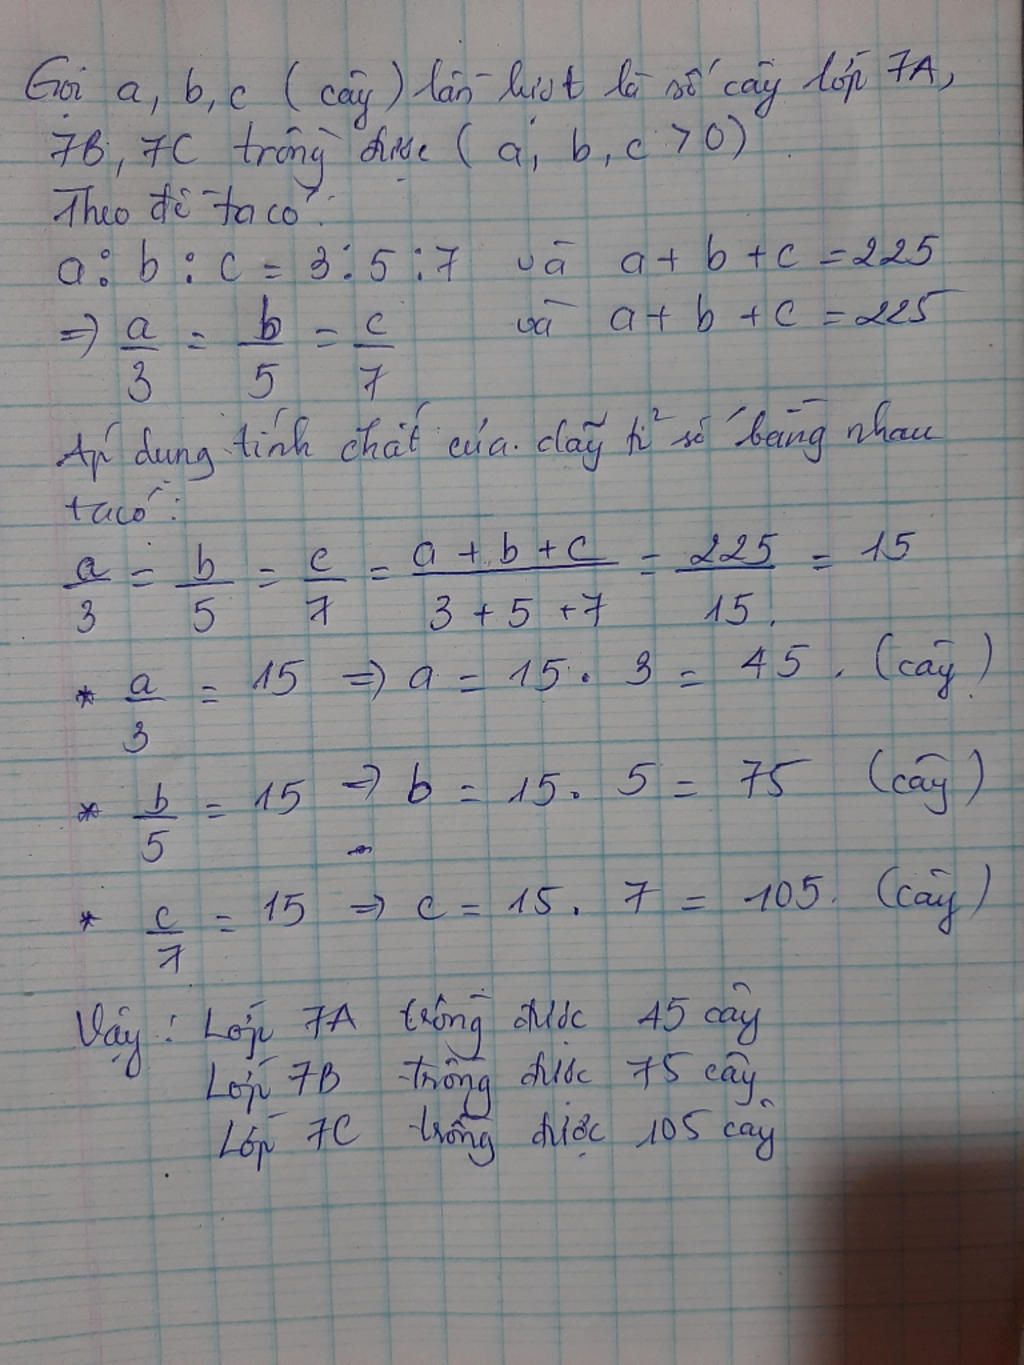 Gọi a, b, c (cây) lần lượt là số cây lớp 7A,
7B, 7C trồng được (a, b, c > 0)
Theo đề ta có:
a : b : c = 3 : 5 : 7 và a + b + c = 225
=> a/3 = b/5 = c/7 và a + b + c = 225
Áp dụng tính chất của dãy tỉ số bằng nhau
ta có:
a/3 = b/5 = c/7 = (a + b + c)/(3 + 5 + 7) = 225/15 = 15
* a/3 = 15 => a = 15 . 3 = 45 . (cây)
* b/5 = 15 => b = 15 . 5 = 75 (cây)
* c/7 = 15 => c = 15 . 7 = 105. (cây)
Vậy: Lớp 7A trồng được 45 cây
Lớp 7B trồng được 75 cây
Lớp 7C trồng được 105 cây